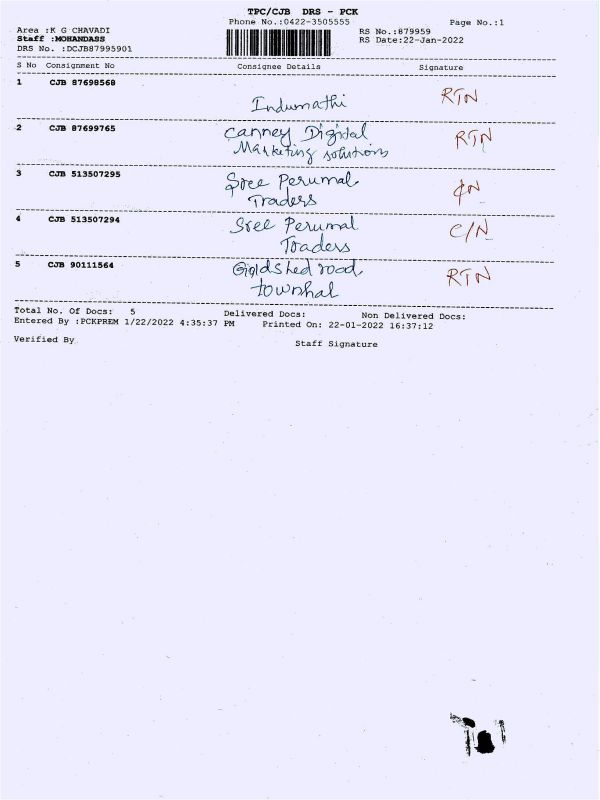 TPC/CJB DRS - PCK
Phone No.:0422-3505555 Page No.:1
Area :K G CHAVADI RS No.:879959
Staff :MOHANDASS RS Date:22-Jan-2022
DRS No. :DCJB87995901
S No Consignment No Consignee Details Signature
1 CJB 87698568
Indumathi RTN
2 CJB 87699765 Canney Digital RTN
Marketing solutions
3 CJB 513507295 Sree Perumal
Traders
4 CJB 513507294 Sree Perumal C/N
Traders
5 CJB 90111564 Goldshed road RTN
townhal
Total No. Of Docs: 5 Delivered Docs: Non Delivered Docs:
Entered By :PCKPREM 1/22/2022 4:35:37 PM Printed On: 22-01-2022 16:37:12
Verified By Staff Signature